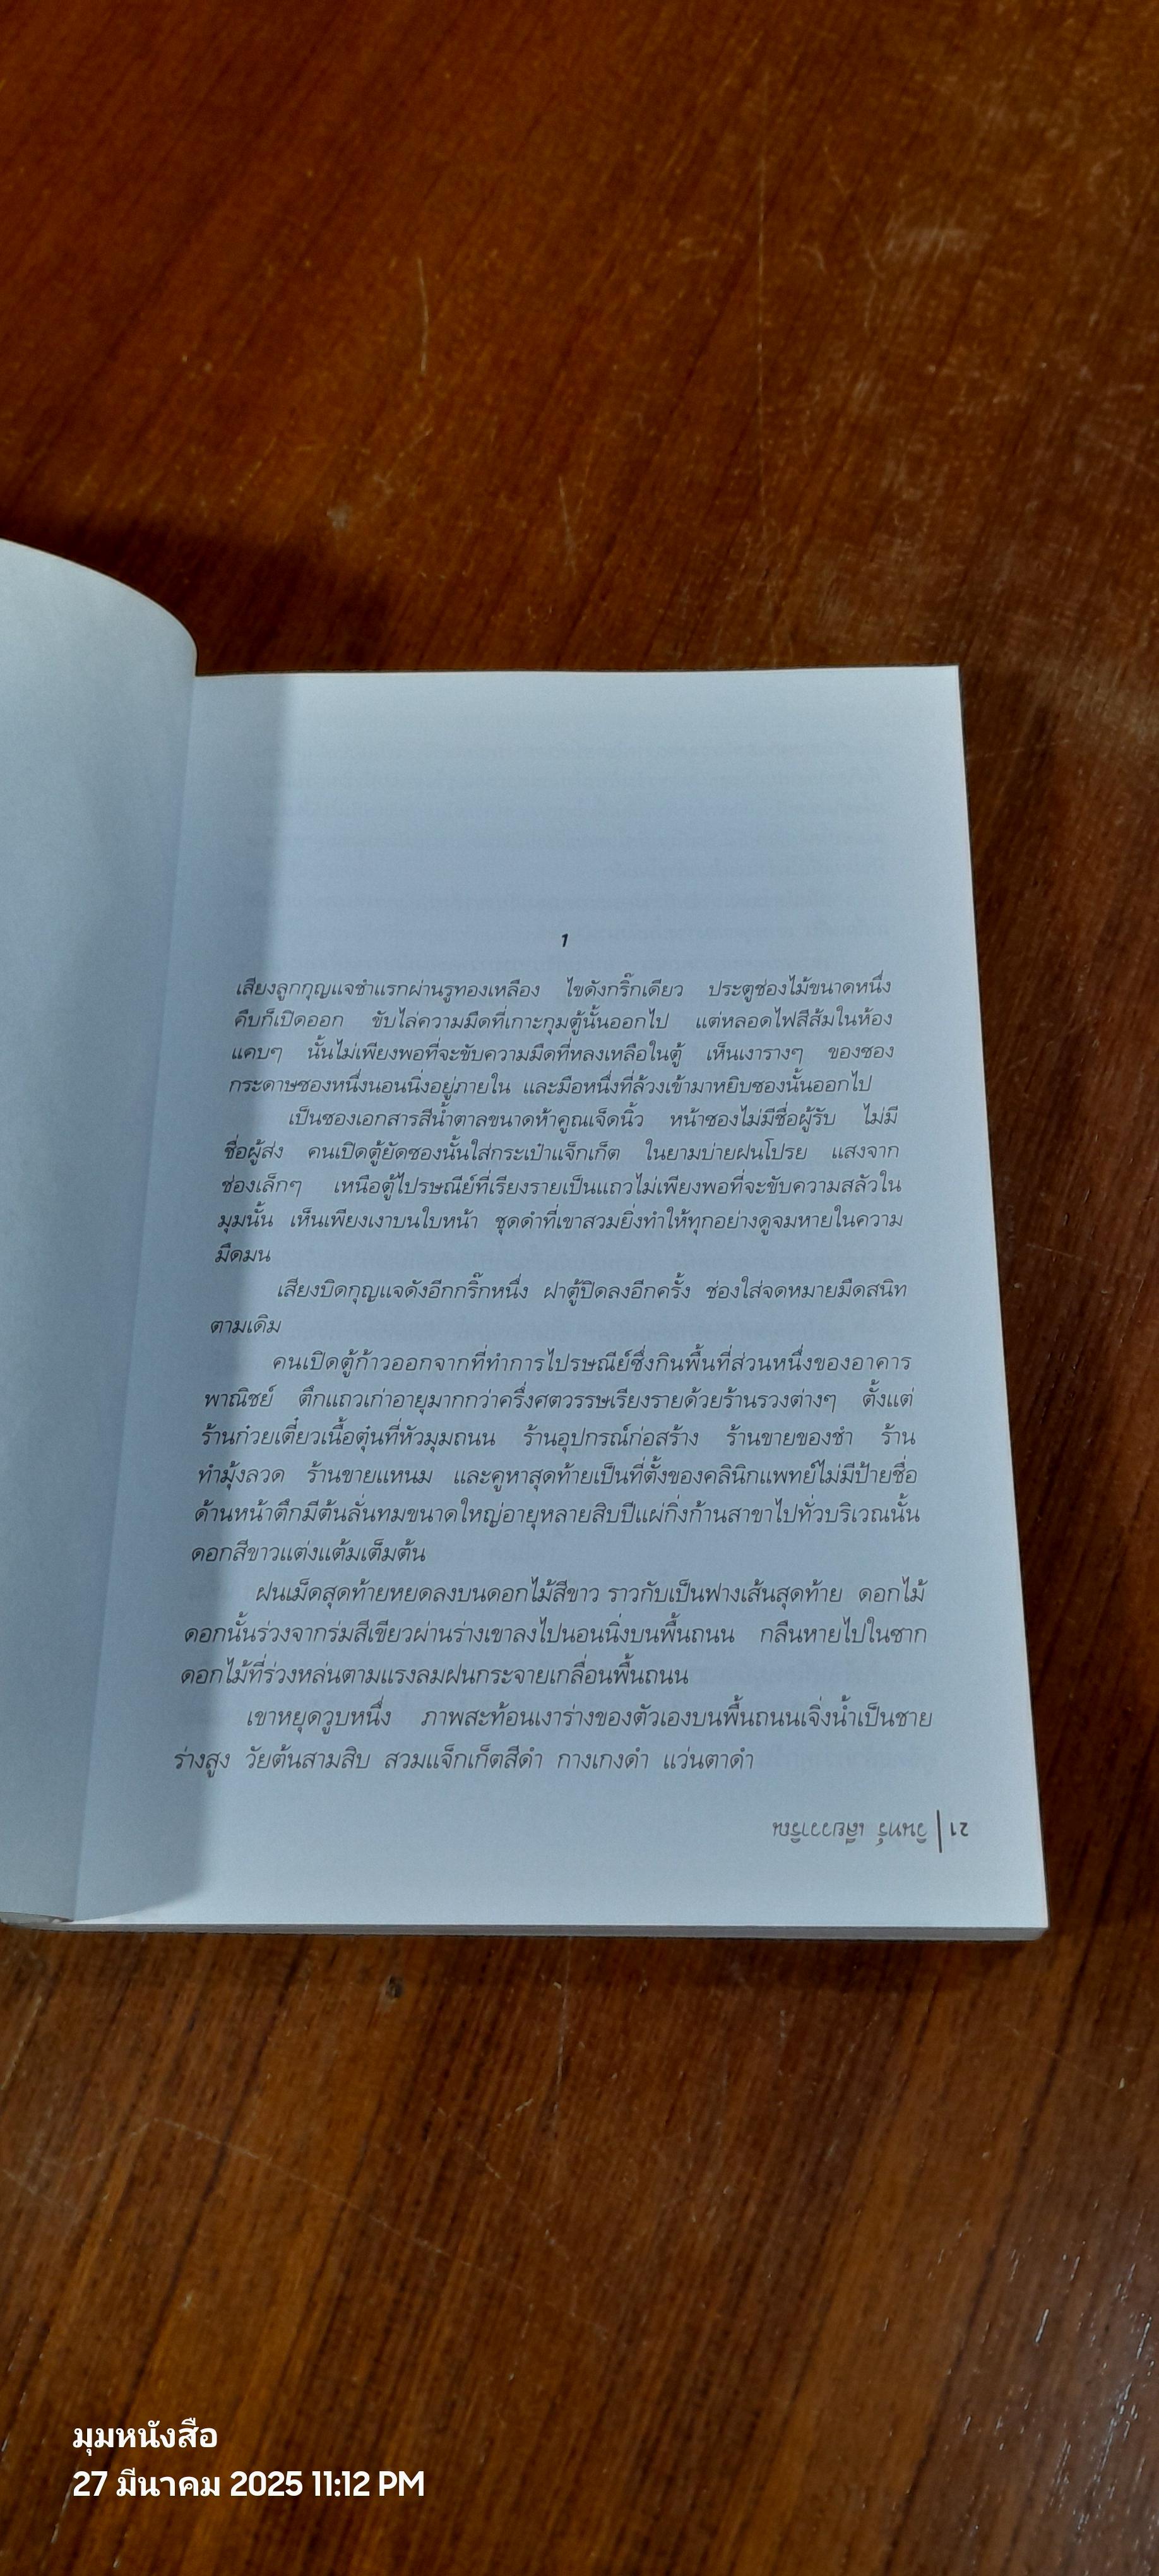 1
เสียงลูกกุญแจชำแรกผ่านรูทองเหลือง ไขดังกริ๊กเดียว ประตูช่องไม้ขนาดหนึ่ง
คืบก็เปิดออก ขับไล่ความมืดที่เกาะกุมตู้นั้นออกไป แต่หลอดไฟสีส้มในห้อง
แคบๆ นั้นไม่เพียงพอที่จะขับความมืดที่หลงเหลือในตู้ เห็นเงารางๆ ของซอง
กระดาษซองหนึ่งนอนนิ่งอยู่ภายใน และมือหนึ่งที่ล้วงเข้ามาหยิบซองนั้นออกไป
เป็นซองเอกสารสีน้ำตาลขนาดห้าคูณเจ็ดนิ้ว หน้าซองไม่มีชื่อผู้รับ ไม่มี
ชื่อผู้ส่ง คนเปิดตู้ยัดซองนั้นใส่กระเป๋าแจ็กเก็ต ในยามบ่ายฝนโปรย แสงจาก
ช่องเล็กๆ เหนือตู้ไปรษณีย์ที่เรียงรายเป็นแถวไม่เพียงพอที่จะขับความสลัวใน
มุมนั้น เห็นเพียงเงาบนใบหน้า ชุดดำที่เขาสวมยิ่งทำให้ทุกอย่างดูจมหายในความ
มืดมน
เสียงบิดกุญแจดังอีกกริ๊กหนึ่ง ฝาตู้ปิดลงอีกครั้ง ช่องใส่จดหมายมืดสนิท
ตามเดิม
คนเปิดตู้ก้าวออกจากที่ทำการไปรษณีย์ซึ่งกินพื้นที่ส่วนหนึ่งของอาคาร
พาณิชย์ ตึกแถวเก่าอายุมากกว่าครึ่งศตวรรษเรียงรายด้วยร้านรวงต่างๆ ตั้งแต่
ร้านก๋วยเตี๋ยวเนื้อตุ๋นที่หัวมุมถนน ร้านอุปกรณ์ก่อสร้าง ร้านขายของชำ ร้าน
ทำมุ้งลวด ร้านขายแหนม และคูหาสุดท้ายเป็นที่ตั้งของคลินิกแพทย์ไม่มีป้ายชื่อ
ด้านหน้าตึกมีต้นลั่นทมขนาดใหญ่อายุหลายสิบปีแผ่กิ่งก้านสาขาไปทั่วบริเวณนั้น
ดอกสีขาวแต่งแต้มเต็มต้น
ฝนเม็ดสุดท้ายหยดลงบนดอกไม้สีขาว ราวกับเป็นฟางเส้นสุดท้าย ดอกไม้
ดอกนั้นร่วงจากร่มสีเขียวผ่านร่างเขาลงไปนอนนิ่งบนพื้นถนน กลืนหายไปในซาก
ดอกไม้ที่ร่วงหล่นตามแรงลมฝนกระจายเกลื่อนพื้นถนน
เขาหยุดวูบหนึ่ง ภาพสะท้อนเงาร่างของตัวเองบนพื้นถนนเจิ่งน้ำเป็นชาย
ร่างสูง วัยต้นสามสิบ สวมแจ็กเก็ตสีดำ กางเกงดำ แว่นตาดำ
21 | วินทร์ เลียววาริณ
มุมหนังสือ
27 มีนาคม 2025 11:12 PM